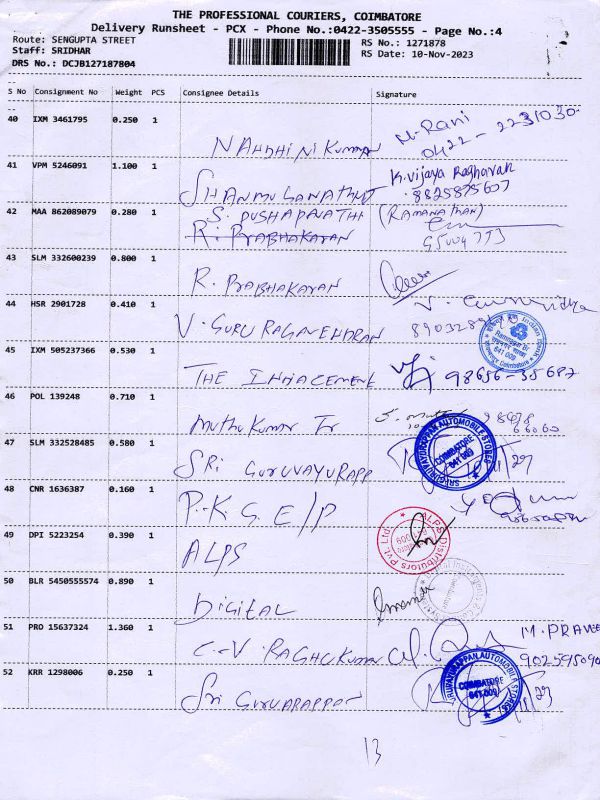 THE PROFESSIONAL COURIERS, COIMBATORE
Delivery Runsheet - PCX - Phone No.:0422-3505555 - Page No.:4
Route: SENGUPTA STREET
RS No.: 1271878
Staff: SRIDHAR
RS Date: 10-Nov-2023
DRS No.: DCJB127187804
S No Consignment No Weight PCS Consignee Details Signature
40 IXM 3461795 0.250 1
NANDHINI KUMARAN N. Rani
0422-2231030
41 VPM 5246091 1.100 1
K. Vijaya Raghavan
8825875607
42 MAA 862089079 0.280 1
S. PUSHAPAVATHI (RAMANATHAN)
R. PRABHAKARAN
43 SLM 332600239 0.800 1
R. PRABHAKARAN
44 HSR 2901728 0.410 1
V. GURU RAGAVENDRAN
Indian Bank
641 009
45 IXM 505237366 0.530 1
THE 98656-35687
46 POL 139248 0.710 1
MUTHUKUMAR Tr
47 SLM 332528485 0.580 1
SRI GURUVAYURAPP
SRI GURUVAYURAPPAN AUTOMOBILE STORES
COIMBATORE
641 009
48 CNR 1636387 0.160 1
P.K.S. E/P
49 DPI 5223254 0.390 1
ALPS
ALPS Distributors Pvt. Ltd.
50 BLR 5450555574 0.890 1
DIGITAL
51 PRO 15637324 1.360 1
C.V. RAGHUKUMAR M. PRAVEE
52 KRR 1298006 0.250 1
Sri GURUARAPPAN
GURUVAYURAPPAN AUTOMOBILE STORES
COIMBATORE
641 009
13